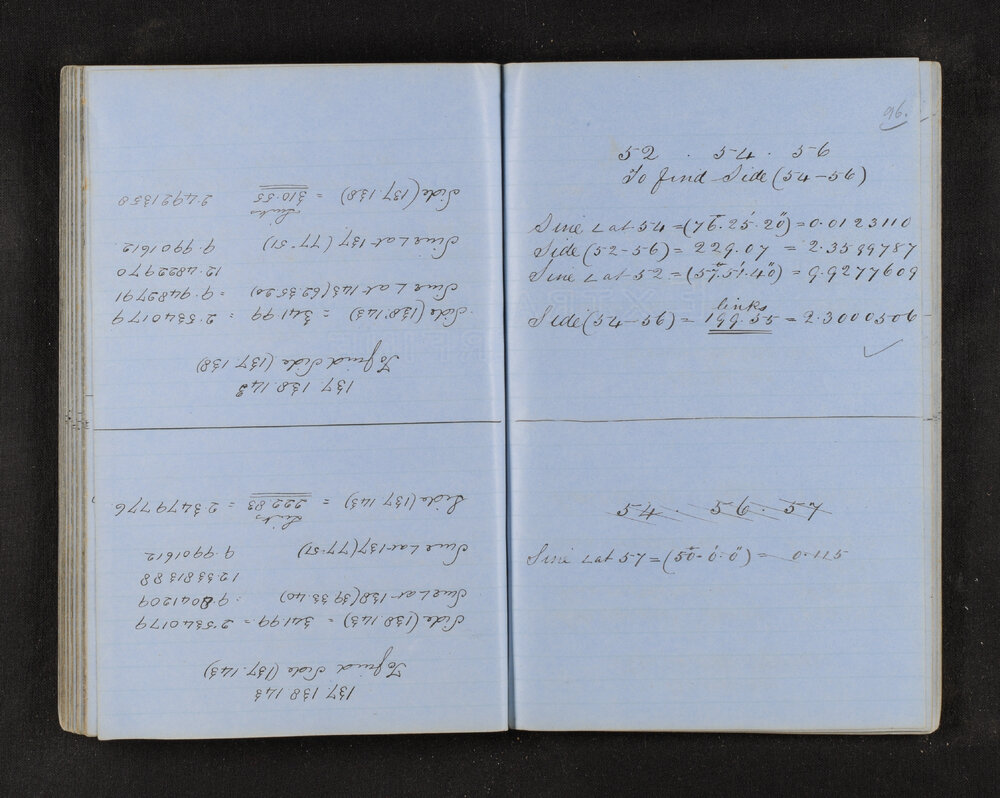 137 138 143
To find Side (137.143)
Side (138.143) = 341.99 = 2.5340179
Sine ∠ at 138 (39.33.40) 9.8041209
12.3381388
Sine ∠ at 137 (77.51) 9.9901612
Links
Side (137 143) = 222.83 = 2.3479776
137 138.143
To find Side (137.138)
Side (138.143) = 341.99 = 2.5340179
Sine ∠ at 143 (62.35.20) = 9.9482791
12.4822970
Sine ∠ at 137 (77.51) 9.9901612
Links
Side (137.138) = 310.55 2.4921358
96.
52 . 54 . 56
To find Side (54-56)
Sine ∠ at 54 = (76°.25'.20") = 0.0123110
Side (52-56) = 229.07 = 2.3599787
Sine ∠ at 52 = (57°.51'.40") = 9.9277609
links
Side (54-56) = 199.55 = 2.3000506
54 . 56 . 57
Sine ∠ at 57 = (50°.0'.0") = 0.115